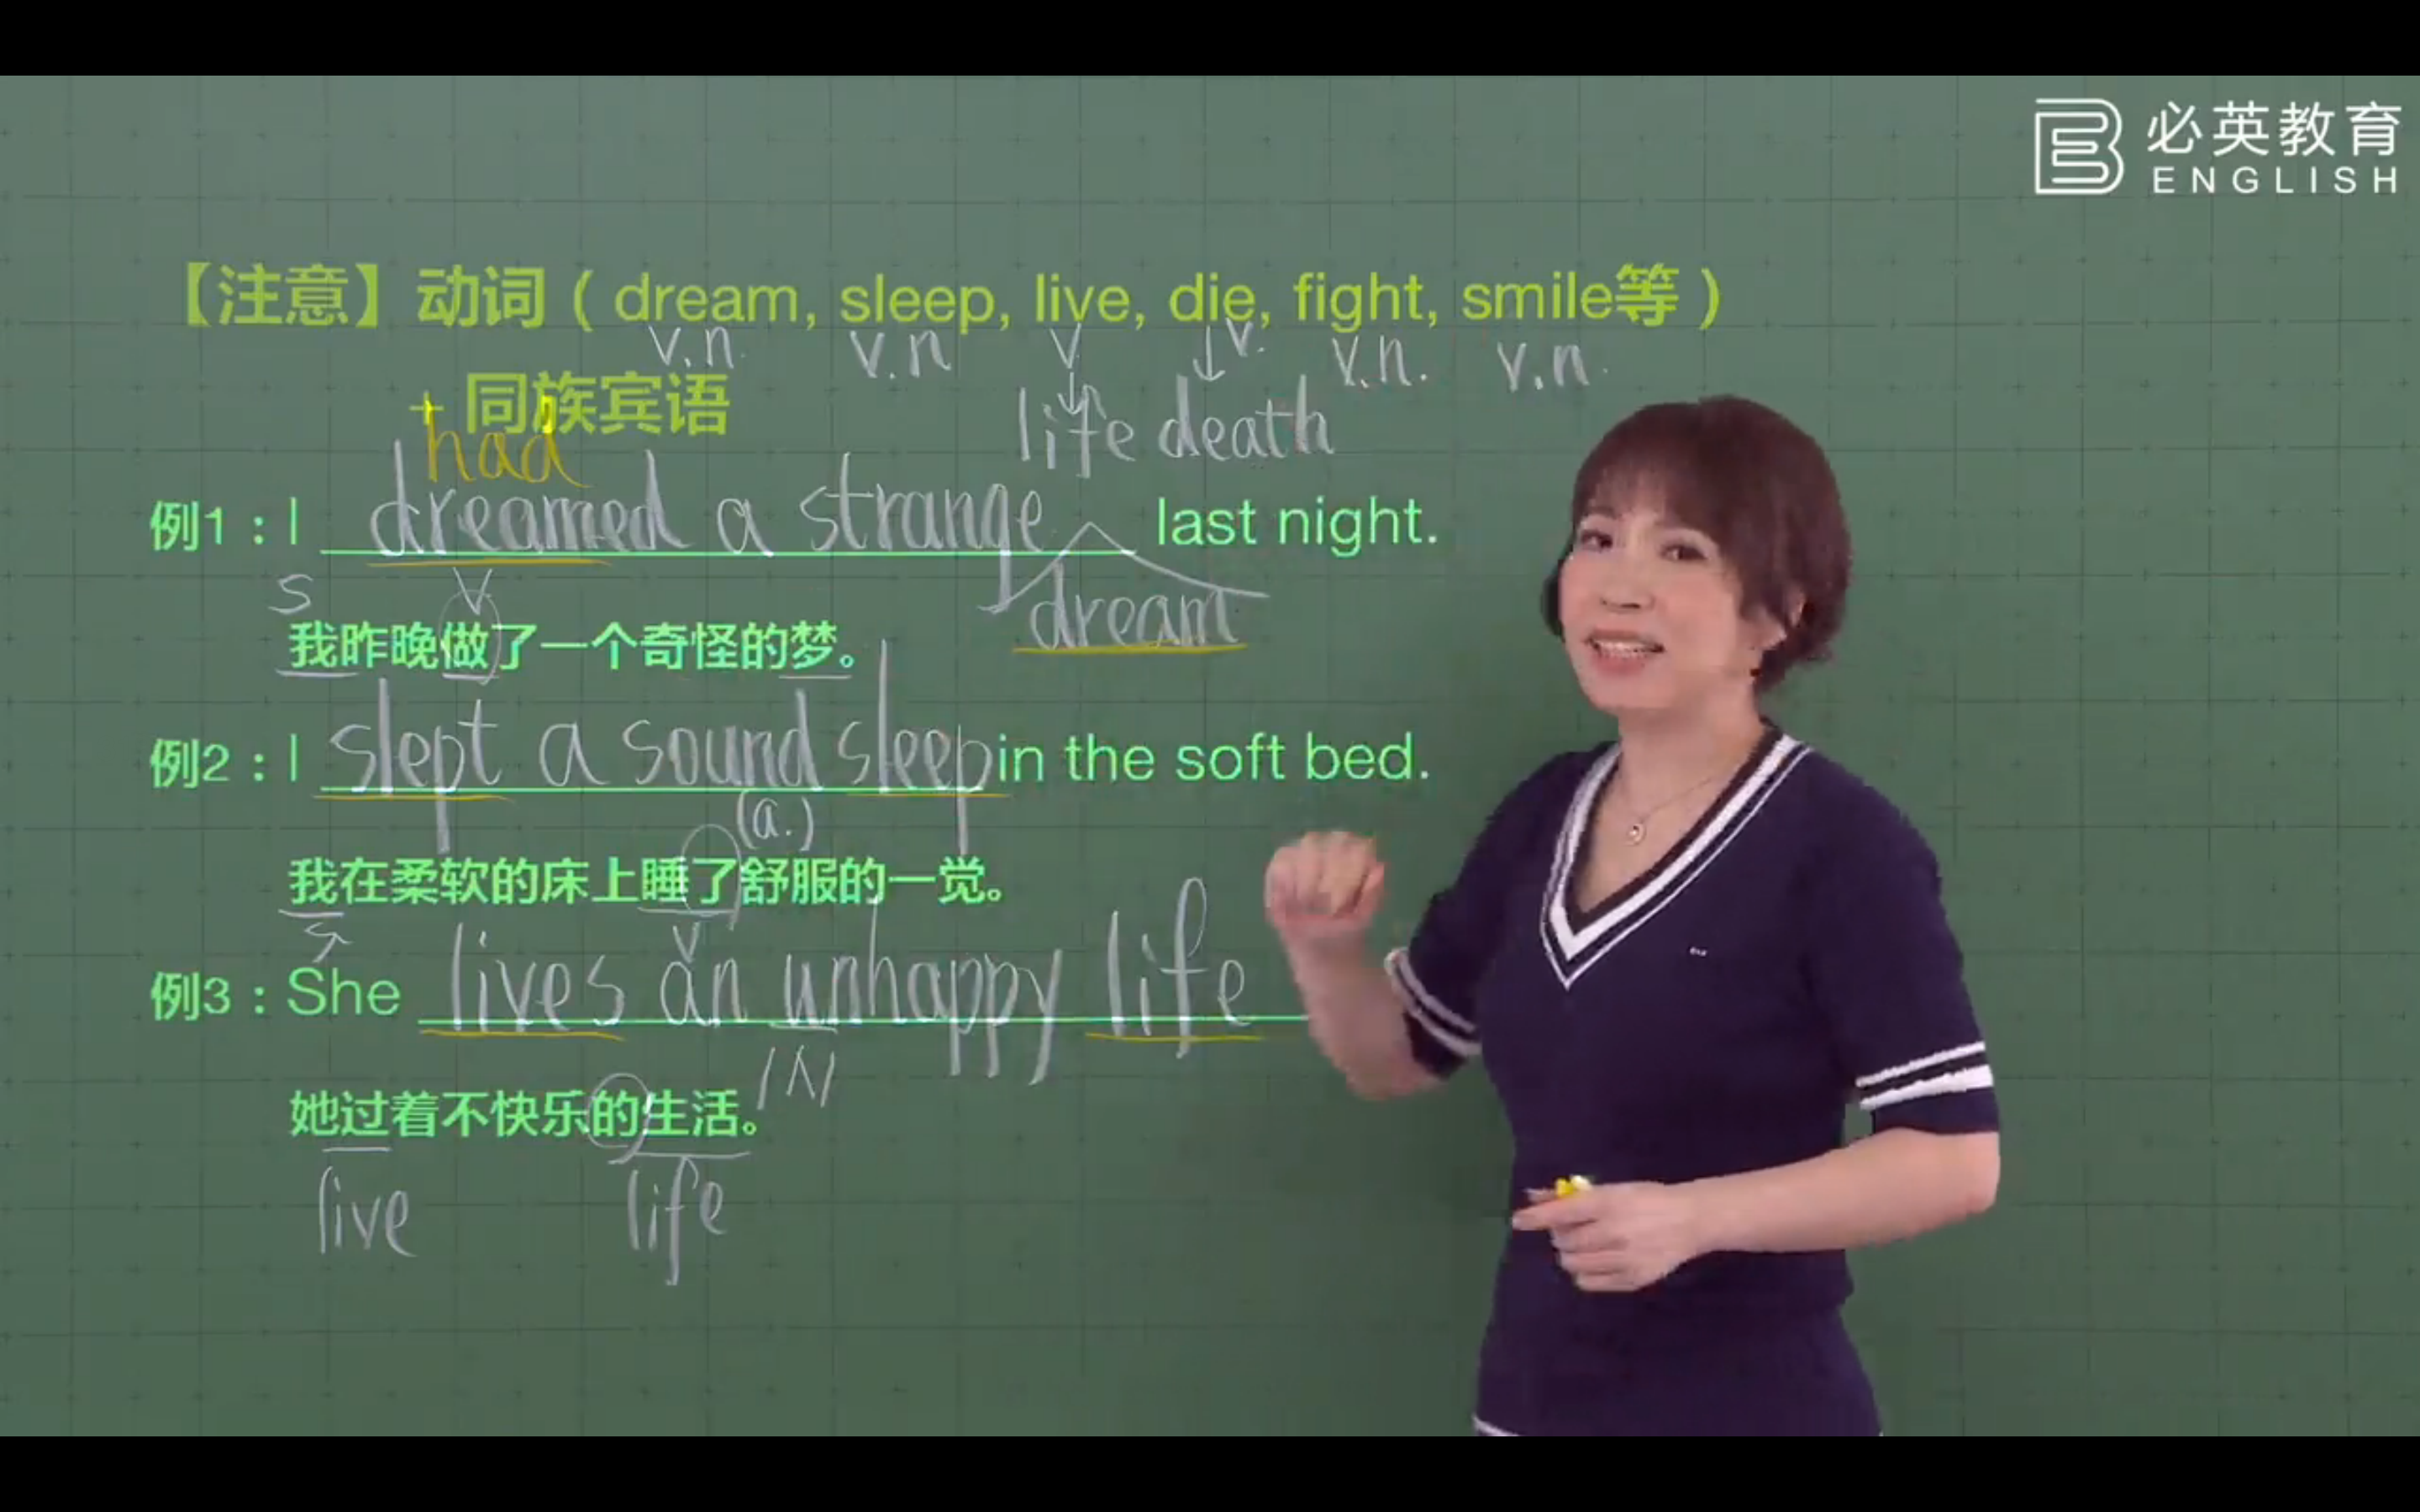 必英教育
ENGLISH
【注意】动词（dream, sleep, live, die, fight, smile等）
v.n. v.n v. v. v.n. v.n.
+ 同族宾语
life death
had
例1：I dreamed a strange last night.
dream
s v
我昨晚做了一个奇怪的梦。
例2：I slept a sound sleep in the soft bed.
(a.)
我在柔软的床上睡了舒服的一觉。
s v
例3：She lives an unhappy life
/ʌ/
她过着不快乐的生活。
live life